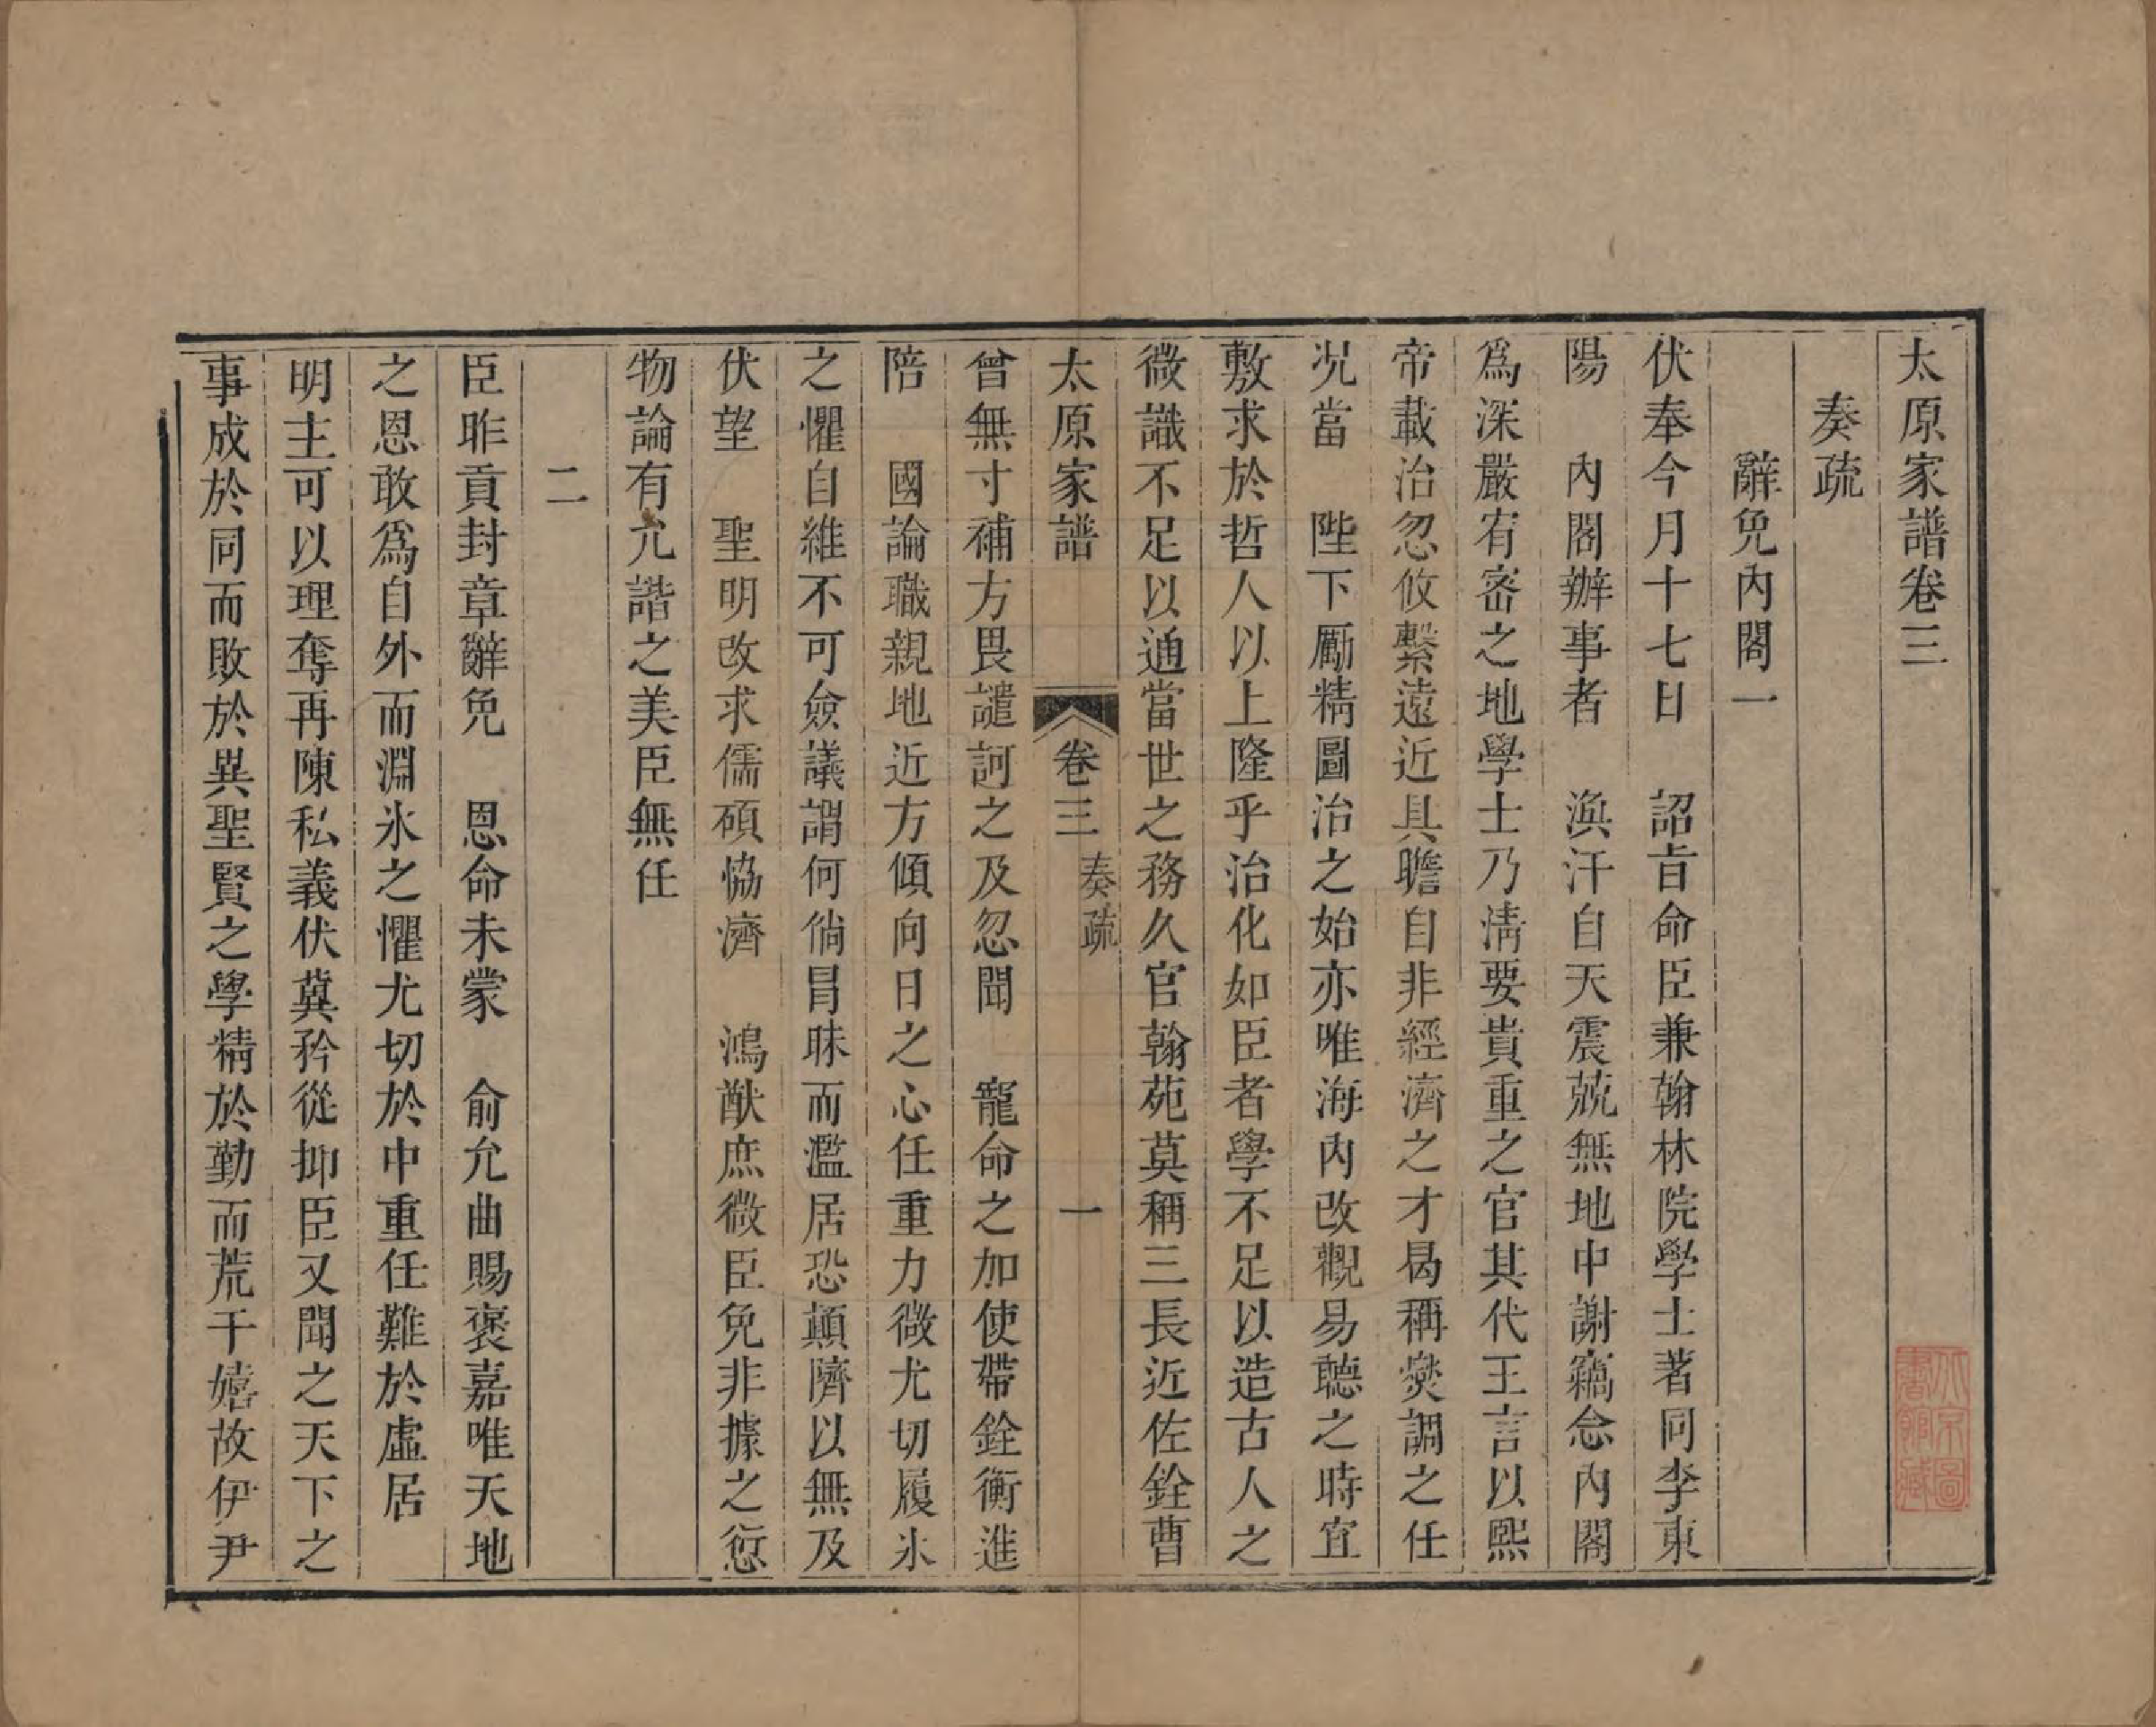 太原家譜卷三
奏疏
辭免內閣一
伏奉今月十七日　詔旨命臣兼翰林院學士著同李東
陽　內閣辦事者　渙汗自天震兢無地中謝竊念內閣
爲深嚴宥密之地學士乃淸要貴重之官其代王言以熙
帝載治忽攸繫遠近具瞻自非經濟之才曷稱爕調之任
況當　陛下厲精圖治之始亦唯海內改觀易聽之時宜
敷求於哲人以上隆乎治化如臣者學不足以造古人之
微識不足以通當世之務久官翰苑莫稱三長近佐銓曹
太原家譜　卷三　奏疏　一
曾無寸補方畏譴訶之及忽聞　寵命之加使帶銓衡進
陪　國論職親地近方傾向日之心任重力微尤切履氷
之懼自維不可僉議謂何徜冒昧而濫居恐顛隮以無及
伏望　聖明改求儒碩恊濟　鴻猷庶微臣免非據之愆
物論有允諧之美臣無任
二
臣昨貢封章辭免　恩命未蒙　俞允曲賜褒嘉唯天地
之恩敢爲自外而淵氷之懼尤切於中重任難於虛居
明主可以理奪再陳私義伏冀矜從抑臣又聞之天下之
事成於同而敗於異聖賢之學精於勤而荒干嬉故伊尹